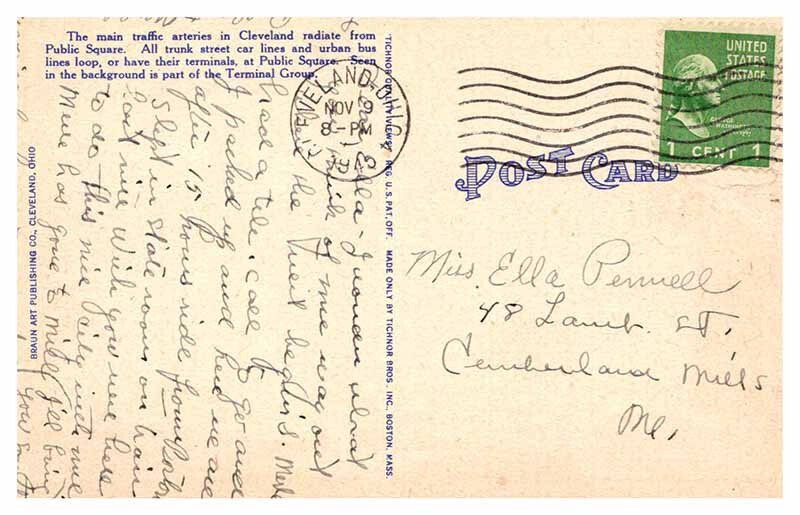 The main traffic arteries in Cleveland radiate from
Public Square. All trunk street car lines and urban bus
lines loop, or have their terminals, at Public Square. Seen
in the background is part of the Terminal Group.
BRAUN ART PUBLISHING CO., CLEVELAND, OHIO
"TICHNOR QUALITY VIEWS," REG. U. S. PAT. OFF. MADE ONLY BY TICHNOR BROS., INC., BOSTON, MASS.
CLEVELAND, OHIO
NOV 9
8-PM
UNITED
STATES
POSTAGE
GEORGE
WASHINGTON
1 CENT 1
POST CARD
Miss. Ella Pennell
48 Lamb. St.
Cumberland Mills
Me.
Dear Ella - I wonder what
you think of me way out
where the West begins. Merle
had a tele. call to go and
I packed up and here we are
after 15 hours ride from Boston
Slept in state room on train
last nite. Wish you were here
to do this nice city with me
Merle has gone to Mill. I'll bring
you